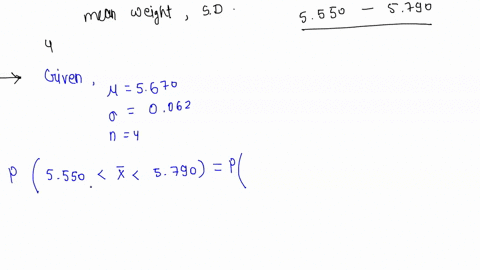 mean weight, S.D.
5.550 - 5.790
4
→ Given,
μ = 5.670
σ = 0.062
n = 4
P ( 5.550 < x̄ < 5.790 ) = P (